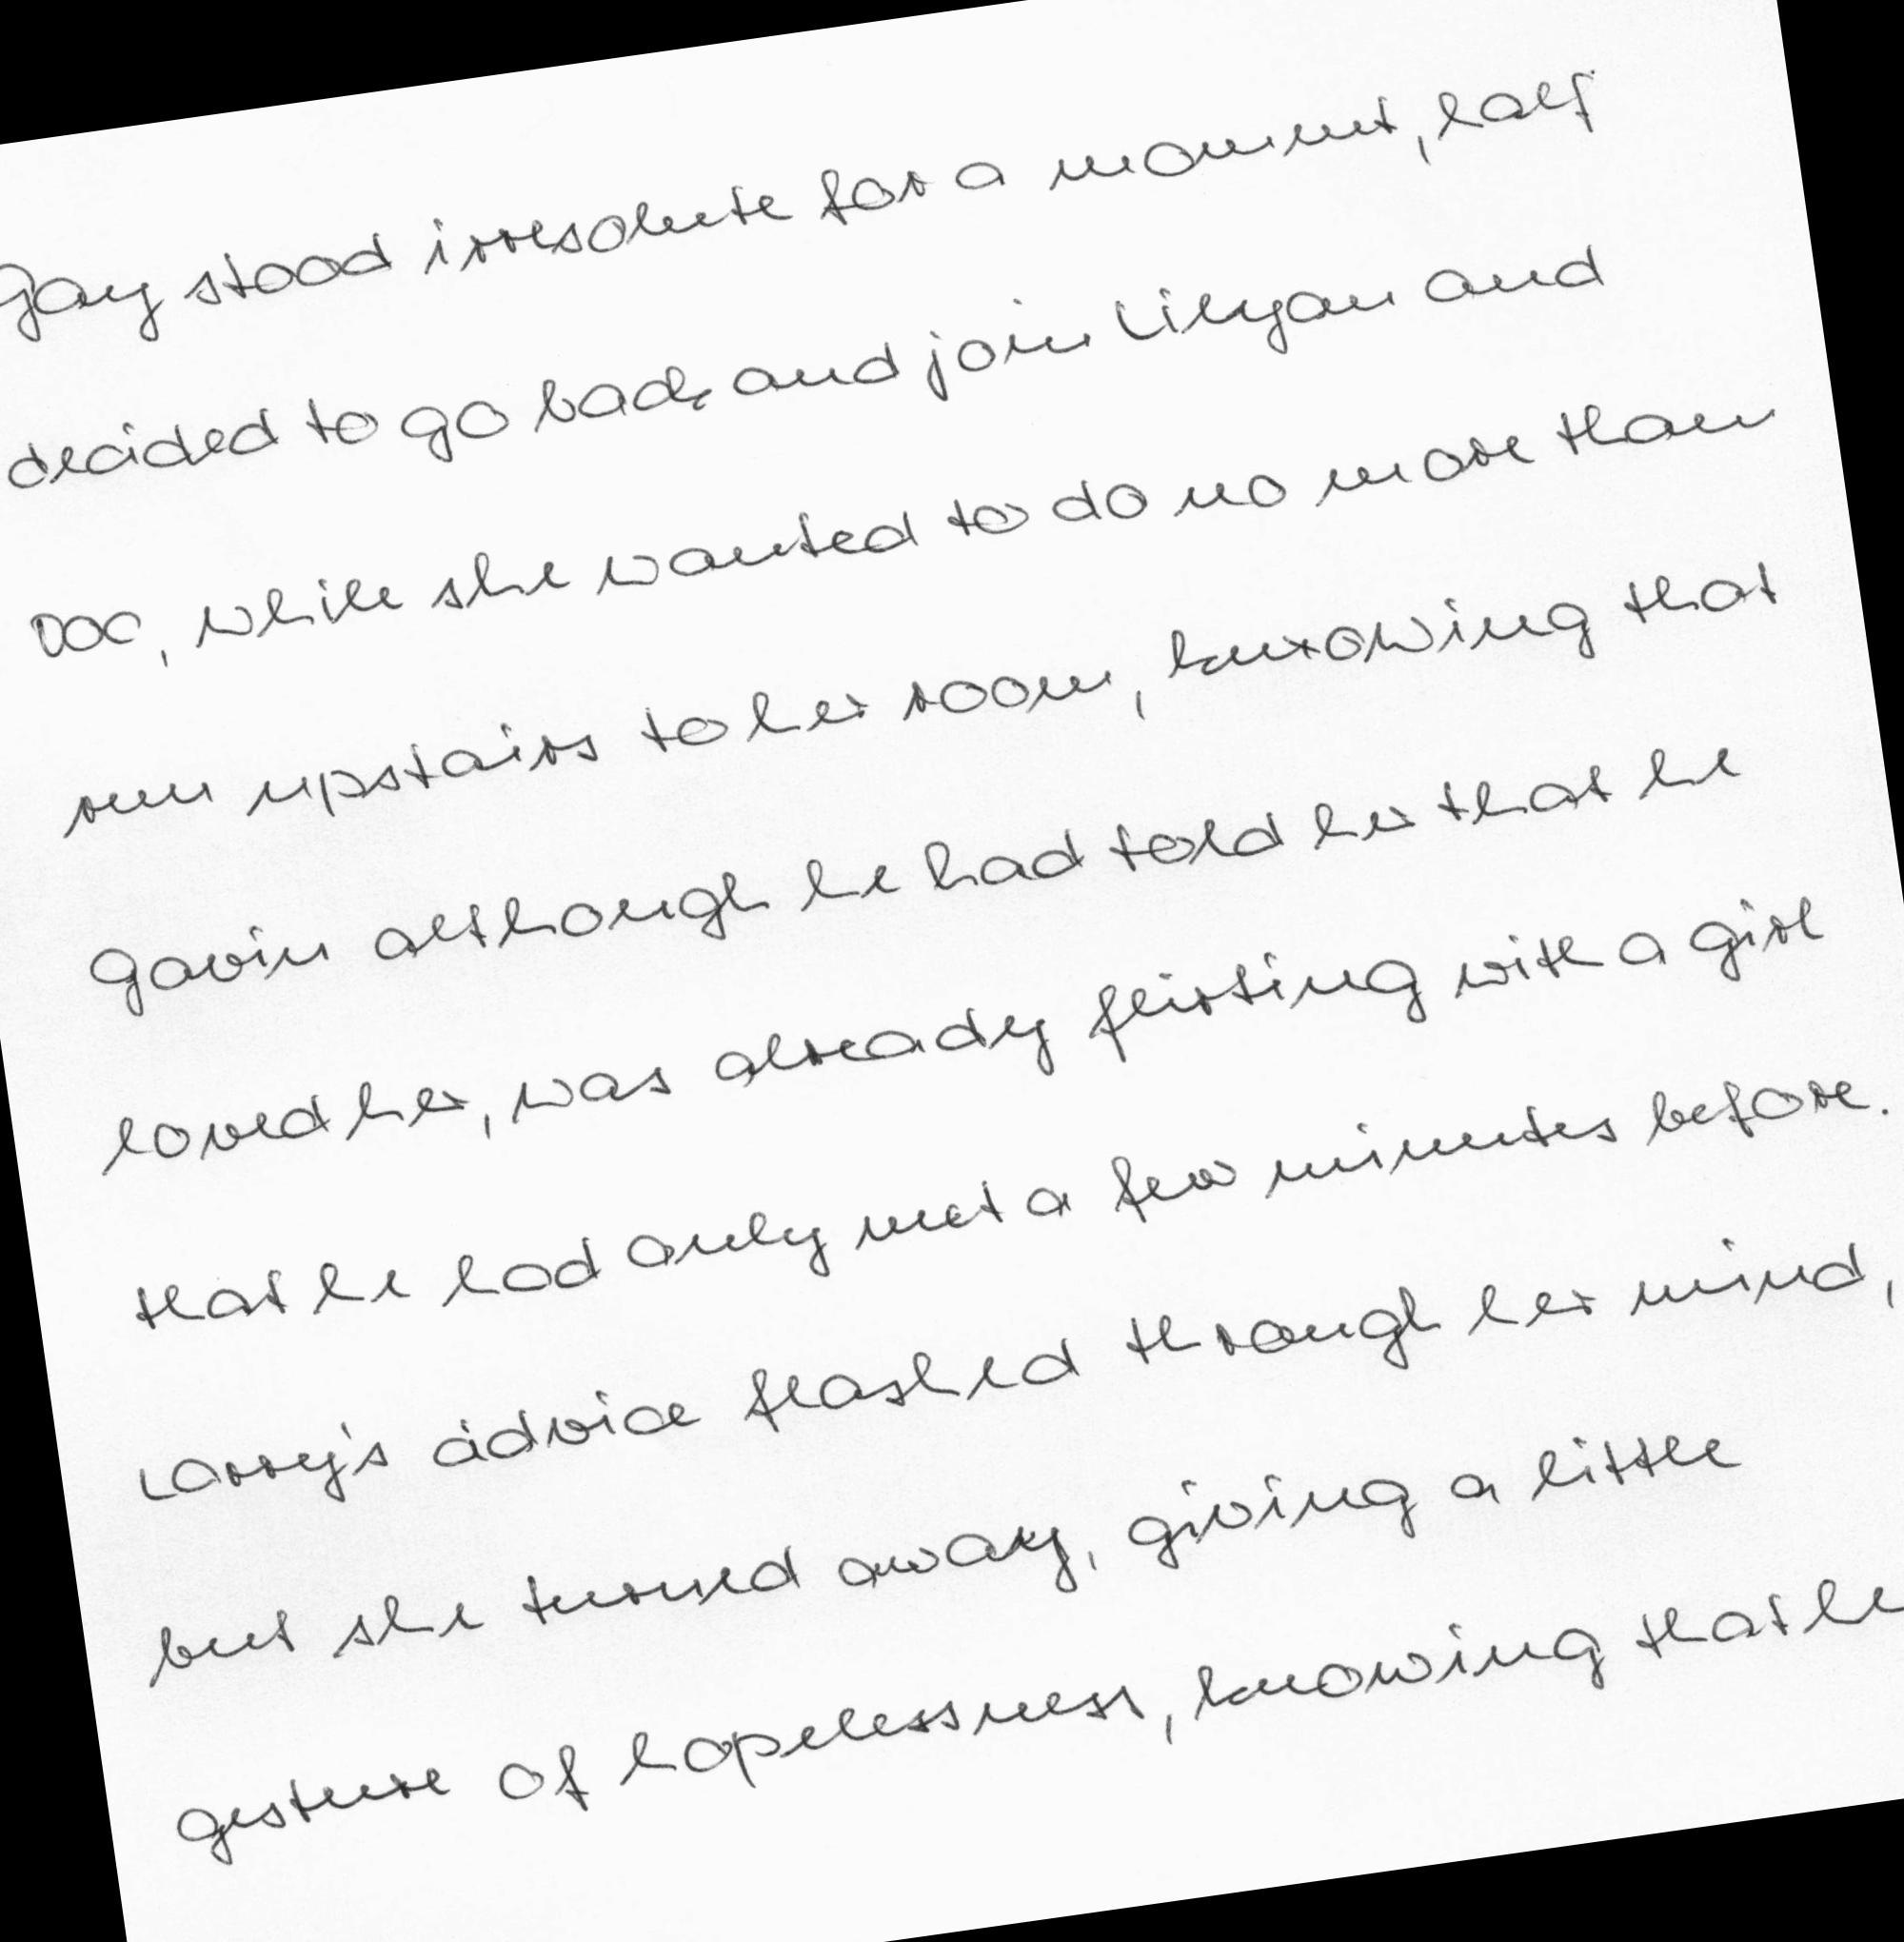 Gay stood irresolute for a moment, half
decided to go back and join Lilyan and
Doc, while she wanted to do no more than
run upstairs to her room, knowing that
Gavin although he had told her that he
loved her, was already flirting with a girl
that he had only met a few minutes before.
Larry's advice flashed through her mind,
but she turned away, giving a little
gesture of hopelessness, knowing that he